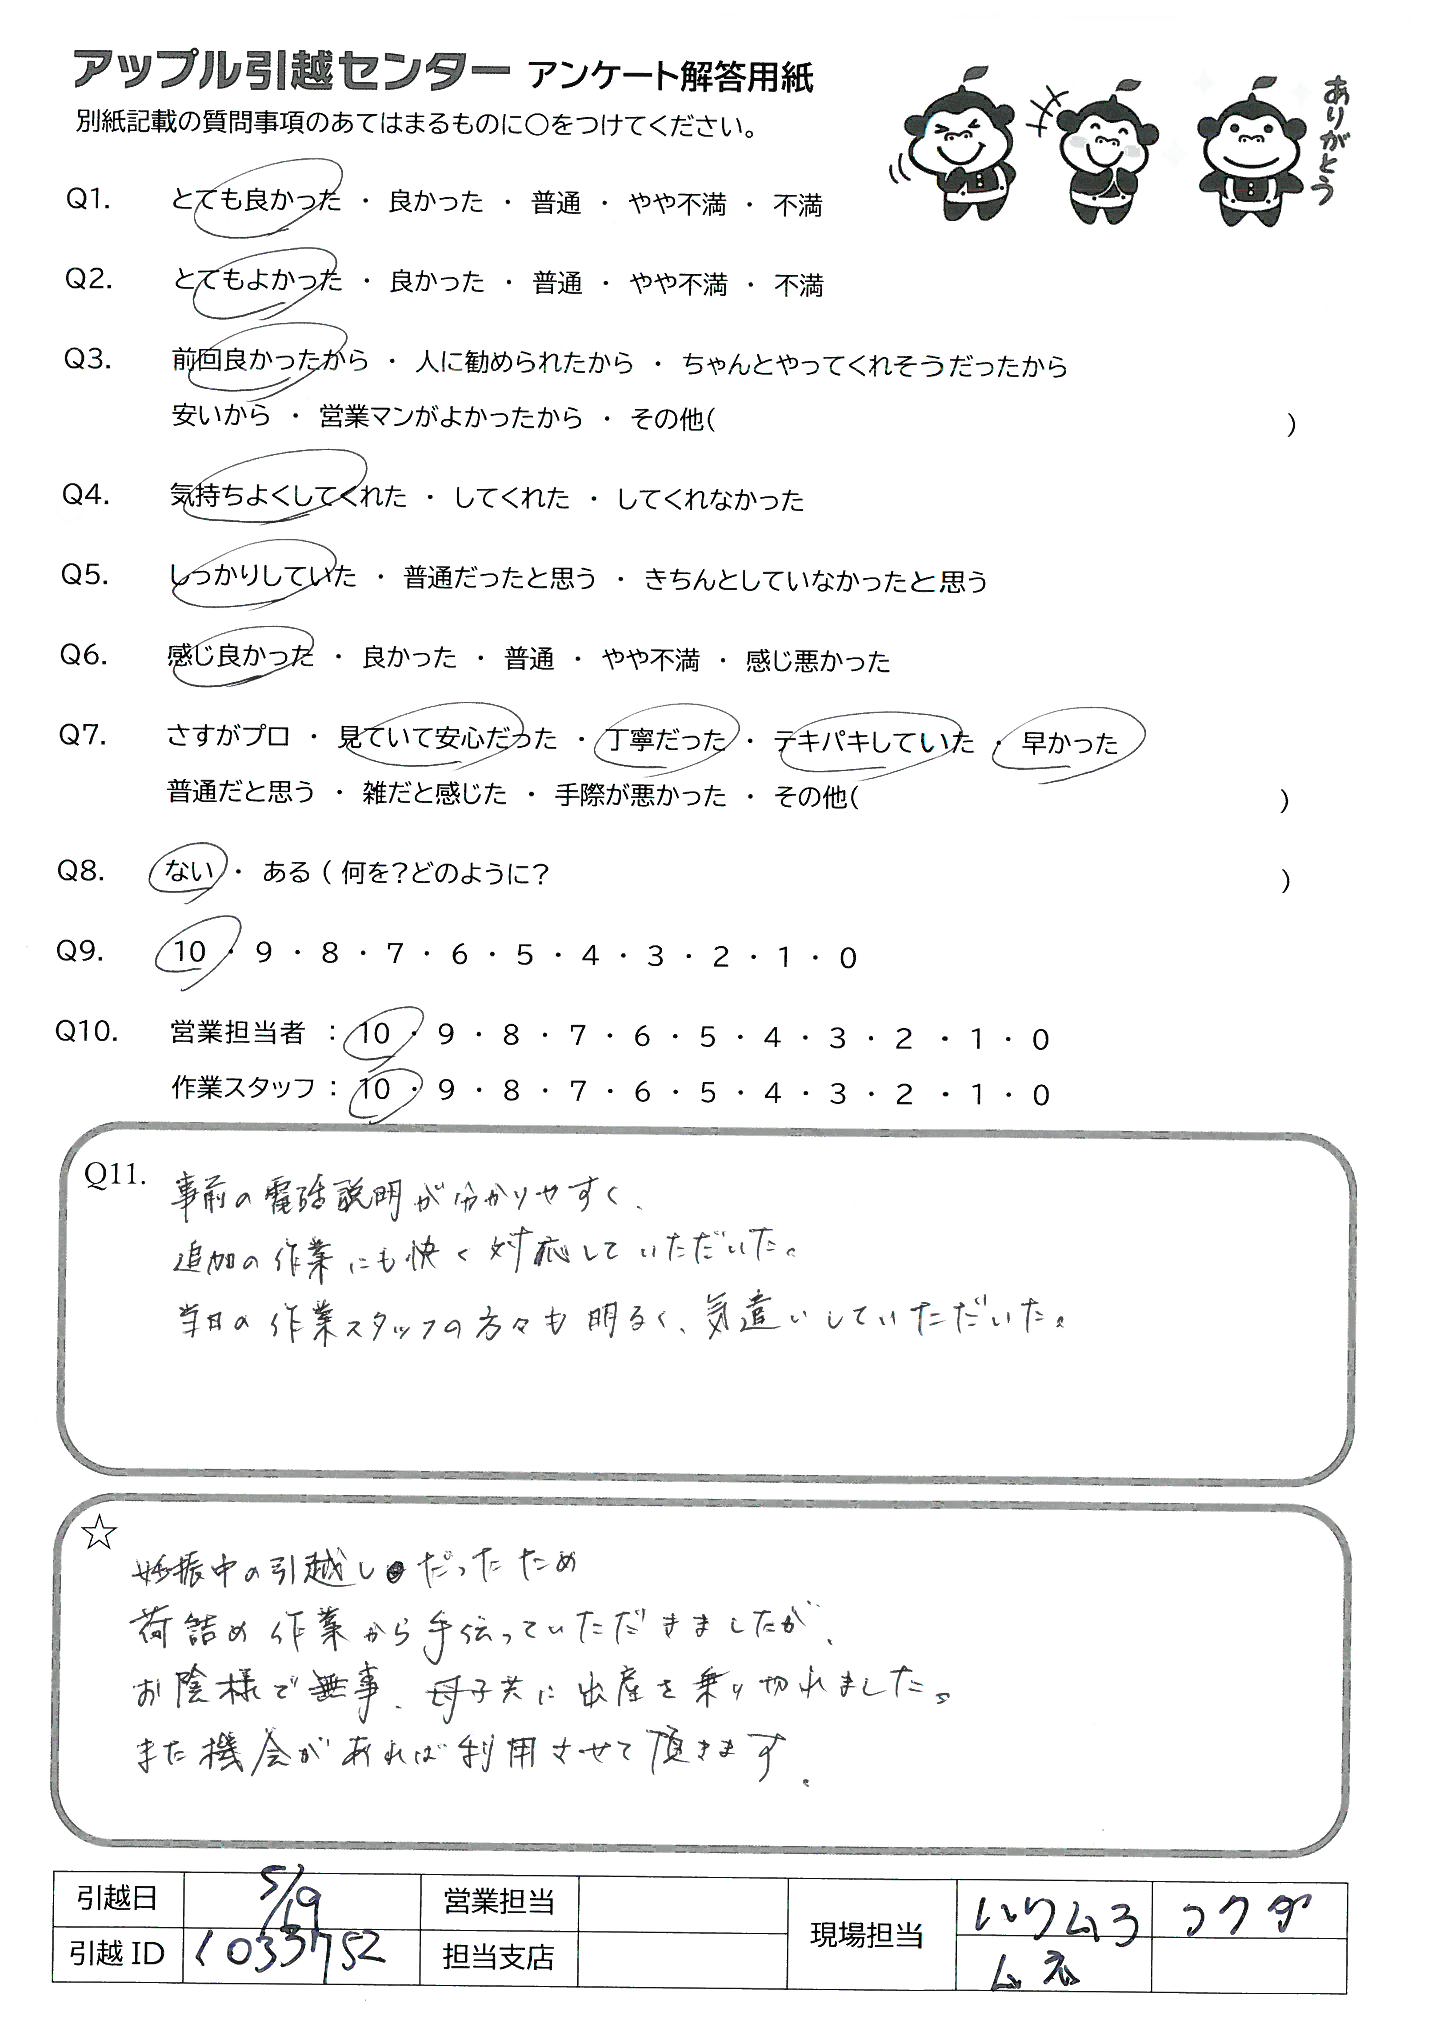 アップル引越センター アンケート解答用紙
ありがとう
別紙記載の質問事項のあてはまるものに○をつけてください。
Q1. とても良かった ・ 良かった ・ 普通 ・ やや不満 ・ 不満
Q2. とてもよかった ・ 良かった ・ 普通 ・ やや不満 ・ 不満
Q3. 前回良かったから ・ 人に勧められたから ・ ちゃんとやってくれそうだったから
安いから ・ 営業マンがよかったから ・ その他( )
Q4. 気持ちよくしてくれた ・ してくれた ・ してくれなかった
Q5. しっかりしていた ・ 普通だったと思う ・ きちんとしていなかったと思う
Q6. 感じ良かった ・ 良かった ・ 普通 ・ やや不満 ・ 感じ悪かった
Q7. さすがプロ ・ 見ていて安心だった ・ 丁寧だった ・ テキパキしていた ・ 早かった
普通だと思う ・ 雑だと感じた ・ 手際が悪かった ・ その他( )
Q8. ない ・ ある ( 何を?どのように? )
Q9. 10 ・ 9 ・ 8 ・ 7 ・ 6 ・ 5 ・ 4 ・ 3 ・ 2 ・ 1 ・ 0
Q10. 営業担当者 : 10 ・ 9 ・ 8 ・ 7 ・ 6 ・ 5 ・ 4 ・ 3 ・ 2 ・ 1 ・ 0
作業スタッフ : 10 ・ 9 ・ 8 ・ 7 ・ 6 ・ 5 ・ 4 ・ 3 ・ 2 ・ 1 ・ 0
Q11. 事前の電話説明が分かりやすく、
追加の作業にも快く対応していただいた。
当日の作業スタッフの方々も明るく、気遣いしていただいた。
☆
妊娠中の引越しだったため
荷詰め作業から手伝っていただきましたが、
お陰様で無事、母子共に出産を乗り切れました。
また機会があれば利用させて頂きます。
引越日 5/19 営業担当 現場担当
引越 ID 1033752 担当支店